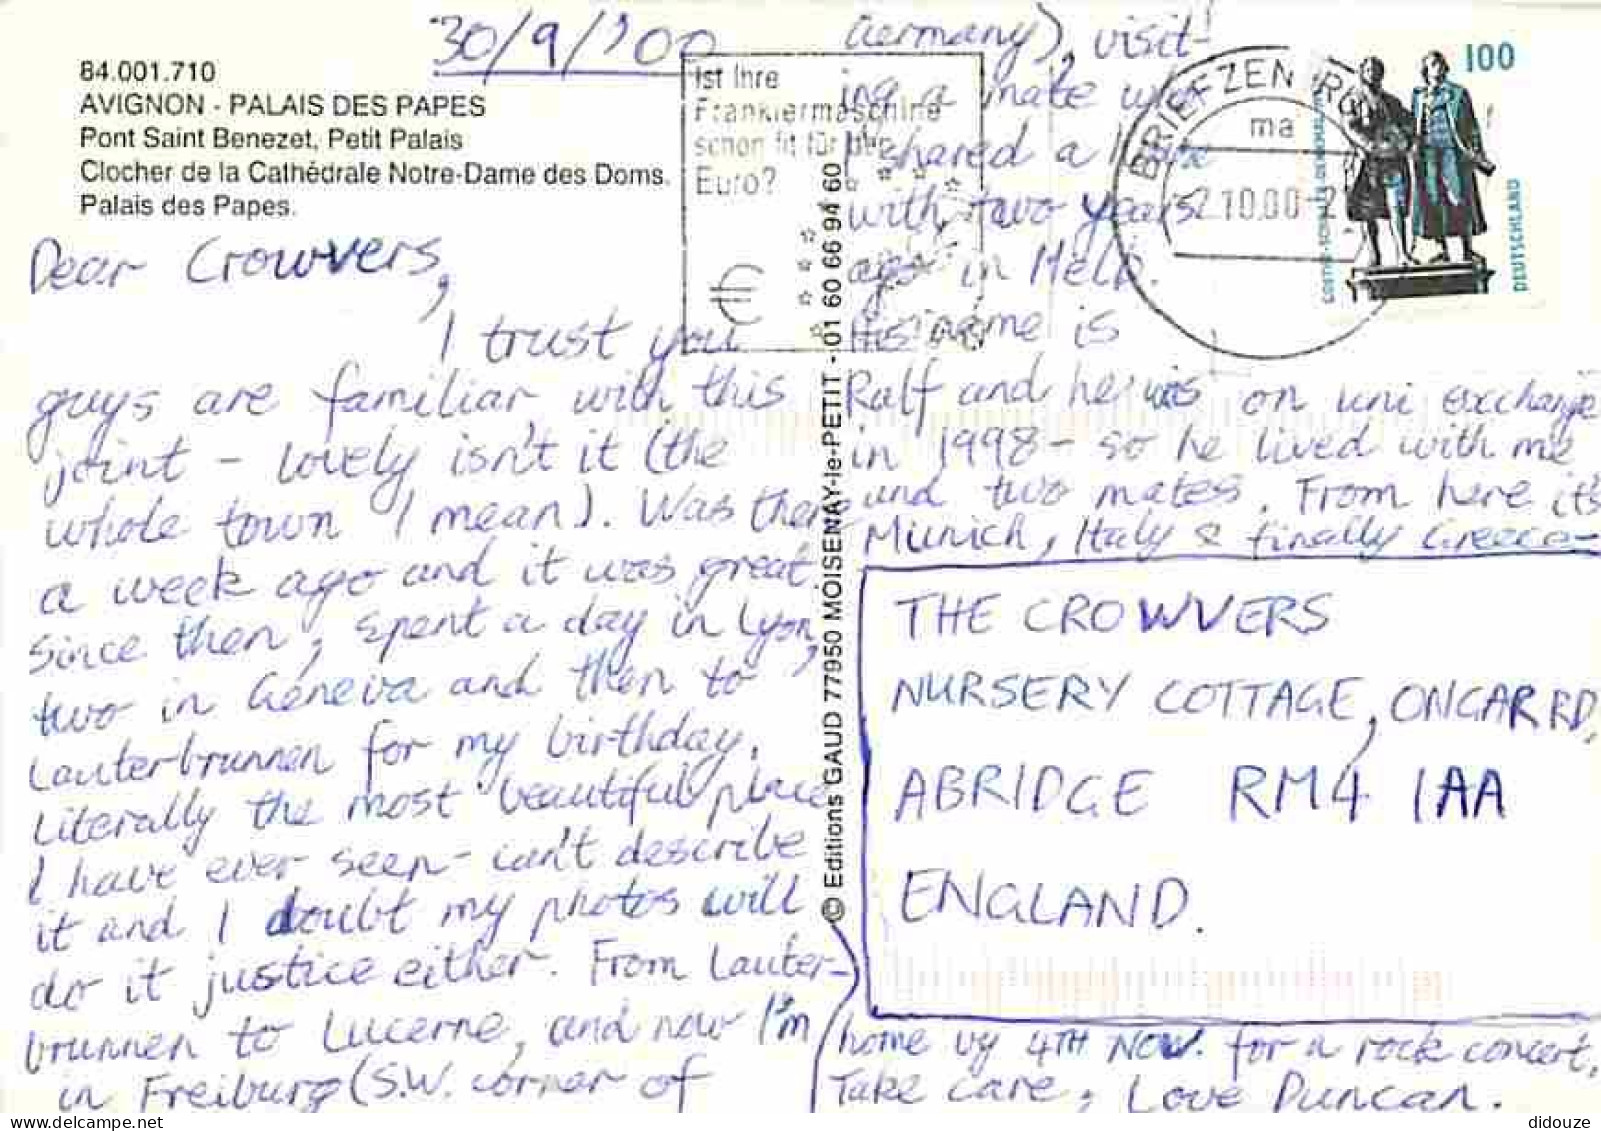 30/9/'00
84.001.710
AVIGNON - PALAIS DES PAPES
Pont Saint Benezet, Petit Palais
Clocher de la Cathédrale Notre-Dame des Doms.
Palais des Papes.
Dear Crowvers,
I trust you
guys are familiar with this
joint - lovely isn't it (the
whole town I mean). Was there
a week ago and it was great.
Since then, spent a day in Lyon,
two in Geneva and then to
Lauterbrunnen for my birthday.
Literally the most beautiful place
I have ever seen - can't describe
it and I doubt my photos will
do it justice either. From Lauter-
brunnen to Lucerne, and now I'm
in Freiburg (S.W. corner of
Germany), visit-
ing a mate who
I shared a house
with two years
ago in Melb.
His name is
Ralf and he was on uni exchange
in 1998 - so he lived with me
and two mates. From here it's
Munich, Italy & finally Greece -
home by 4TH NOV. for a rock concert.
Take care, Love Duncan.
Ist Ihre
Frankiermaschine
schon fit für den
Euro?
€
BRIEFZENTRUM
ma
2.10.00-2
100
GOETHE-SCHILLER-DENKMAL
DEUTSCHLAND
© Editions GAUD 77950 MOISENAY-le-PETIT - 01 60 66 94 60
THE CROWVERS
NURSERY COTTAGE, ONGAR RD,
ABRIDGE RM4 1AA
ENGLAND.
didouze